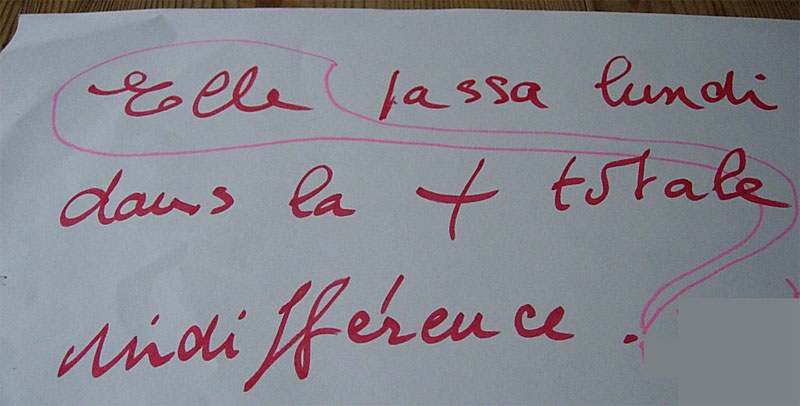 Elle passa lundi
dans la + totale
indifférence.